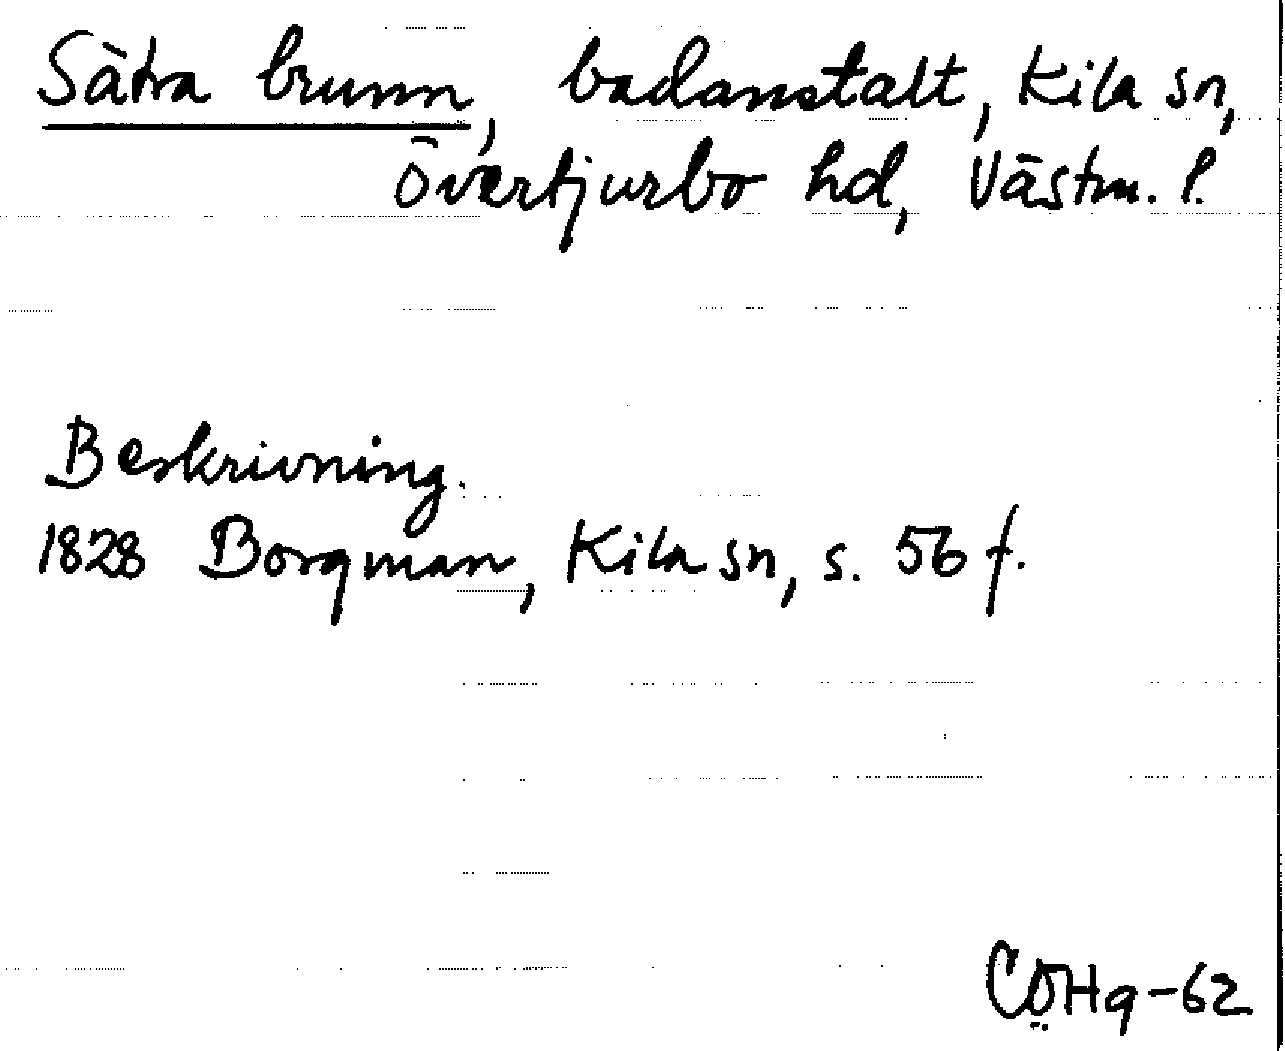 Sätra brunn, badanstalt, Kila sn,
Övertjurbo hd, Västm. l.
Beskrivning.
1828 Borgman, Kila sn, s. 56 f.
CÖHg-62